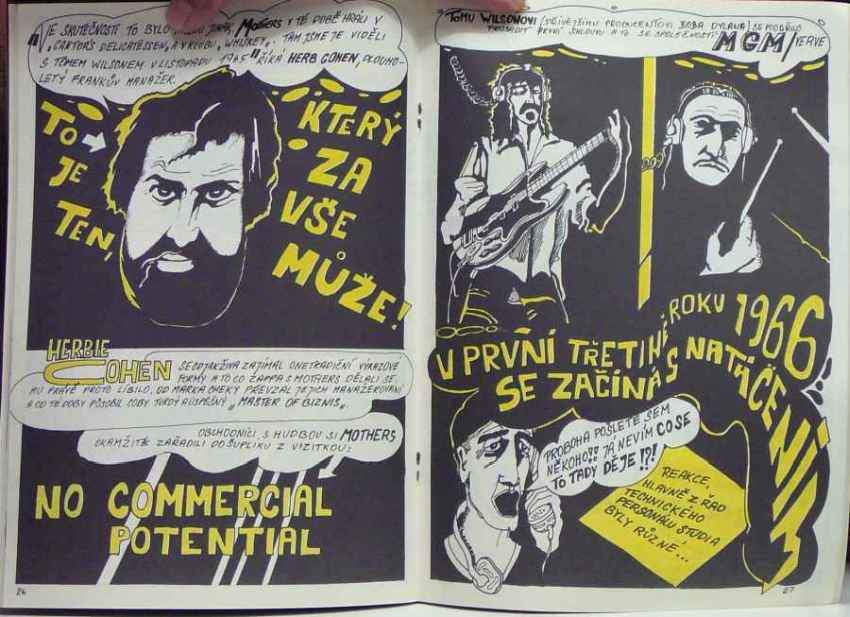 JE SKUTEČNOSTI TO BYLO JINAK, MOTHERS V TÉ DOBĚ HRÁLI V
"CARTOR'S DELICATESSEN, A V KLUBU "WHISKEY". TAM JSME JE VIDĚLI
S TOMEM WILSONEM V LISTOPADU 1965" ŘÍKÁ HERB COHEN, DLOUHO-
LETÝ FRANKŮV MANAŽER.
TO
JE
TEN,
KTERÝ
ZA
VŠE
MŮŽE!
HERBIE
COHEN
SE ODJAKŽIVA ZAJÍMAL O NETRADIČNÍ VÝRAZOVÉ
FORMY A TO CO ZAPPA S MOTHERS DĚLALI SE
MU PRÁVĚ PROTO LÍBILO, OD MARKA CHEKY PŘEVZAL JEJICH MANAŽEROVÁNÍ
A OD TÉ DOBY PŮSOBIL COBY TVRDÝ A ÚSPĚŠNÝ "MASTER OF BIZNIS".
OBCHODNÍCI, S HUDBOU SI MOTHERS
OKAMŽITĚ ZAŘADILI DO ŠUPLÍKU Z VIZITKOU:
NO COMMERCIAL
POTENTIAL
26
TOMU WILSONOVI (NĚJŠÍMU PRODUCENTOVI BOBA DYLANA) SE PODAŘILO
PRVNÍ SMLOUVU SE SPOLEČNOSTÍ
MGM/VERVE
V PRVNÍ TŘETINĚ ROKU 1966
SE ZAČÍNÁ S NATÁČENÍM
PROBOHA POŠLETE SEM
NĚKOHO!! JÁ NEVÍM CO SE
TO TADY DĚJE!?!
REAKCE,
HLAVNĚ Z ŘAD
TECHNICKÉHO
PERSONÁLU STUDIA
BYLY RŮZNÉ...
27